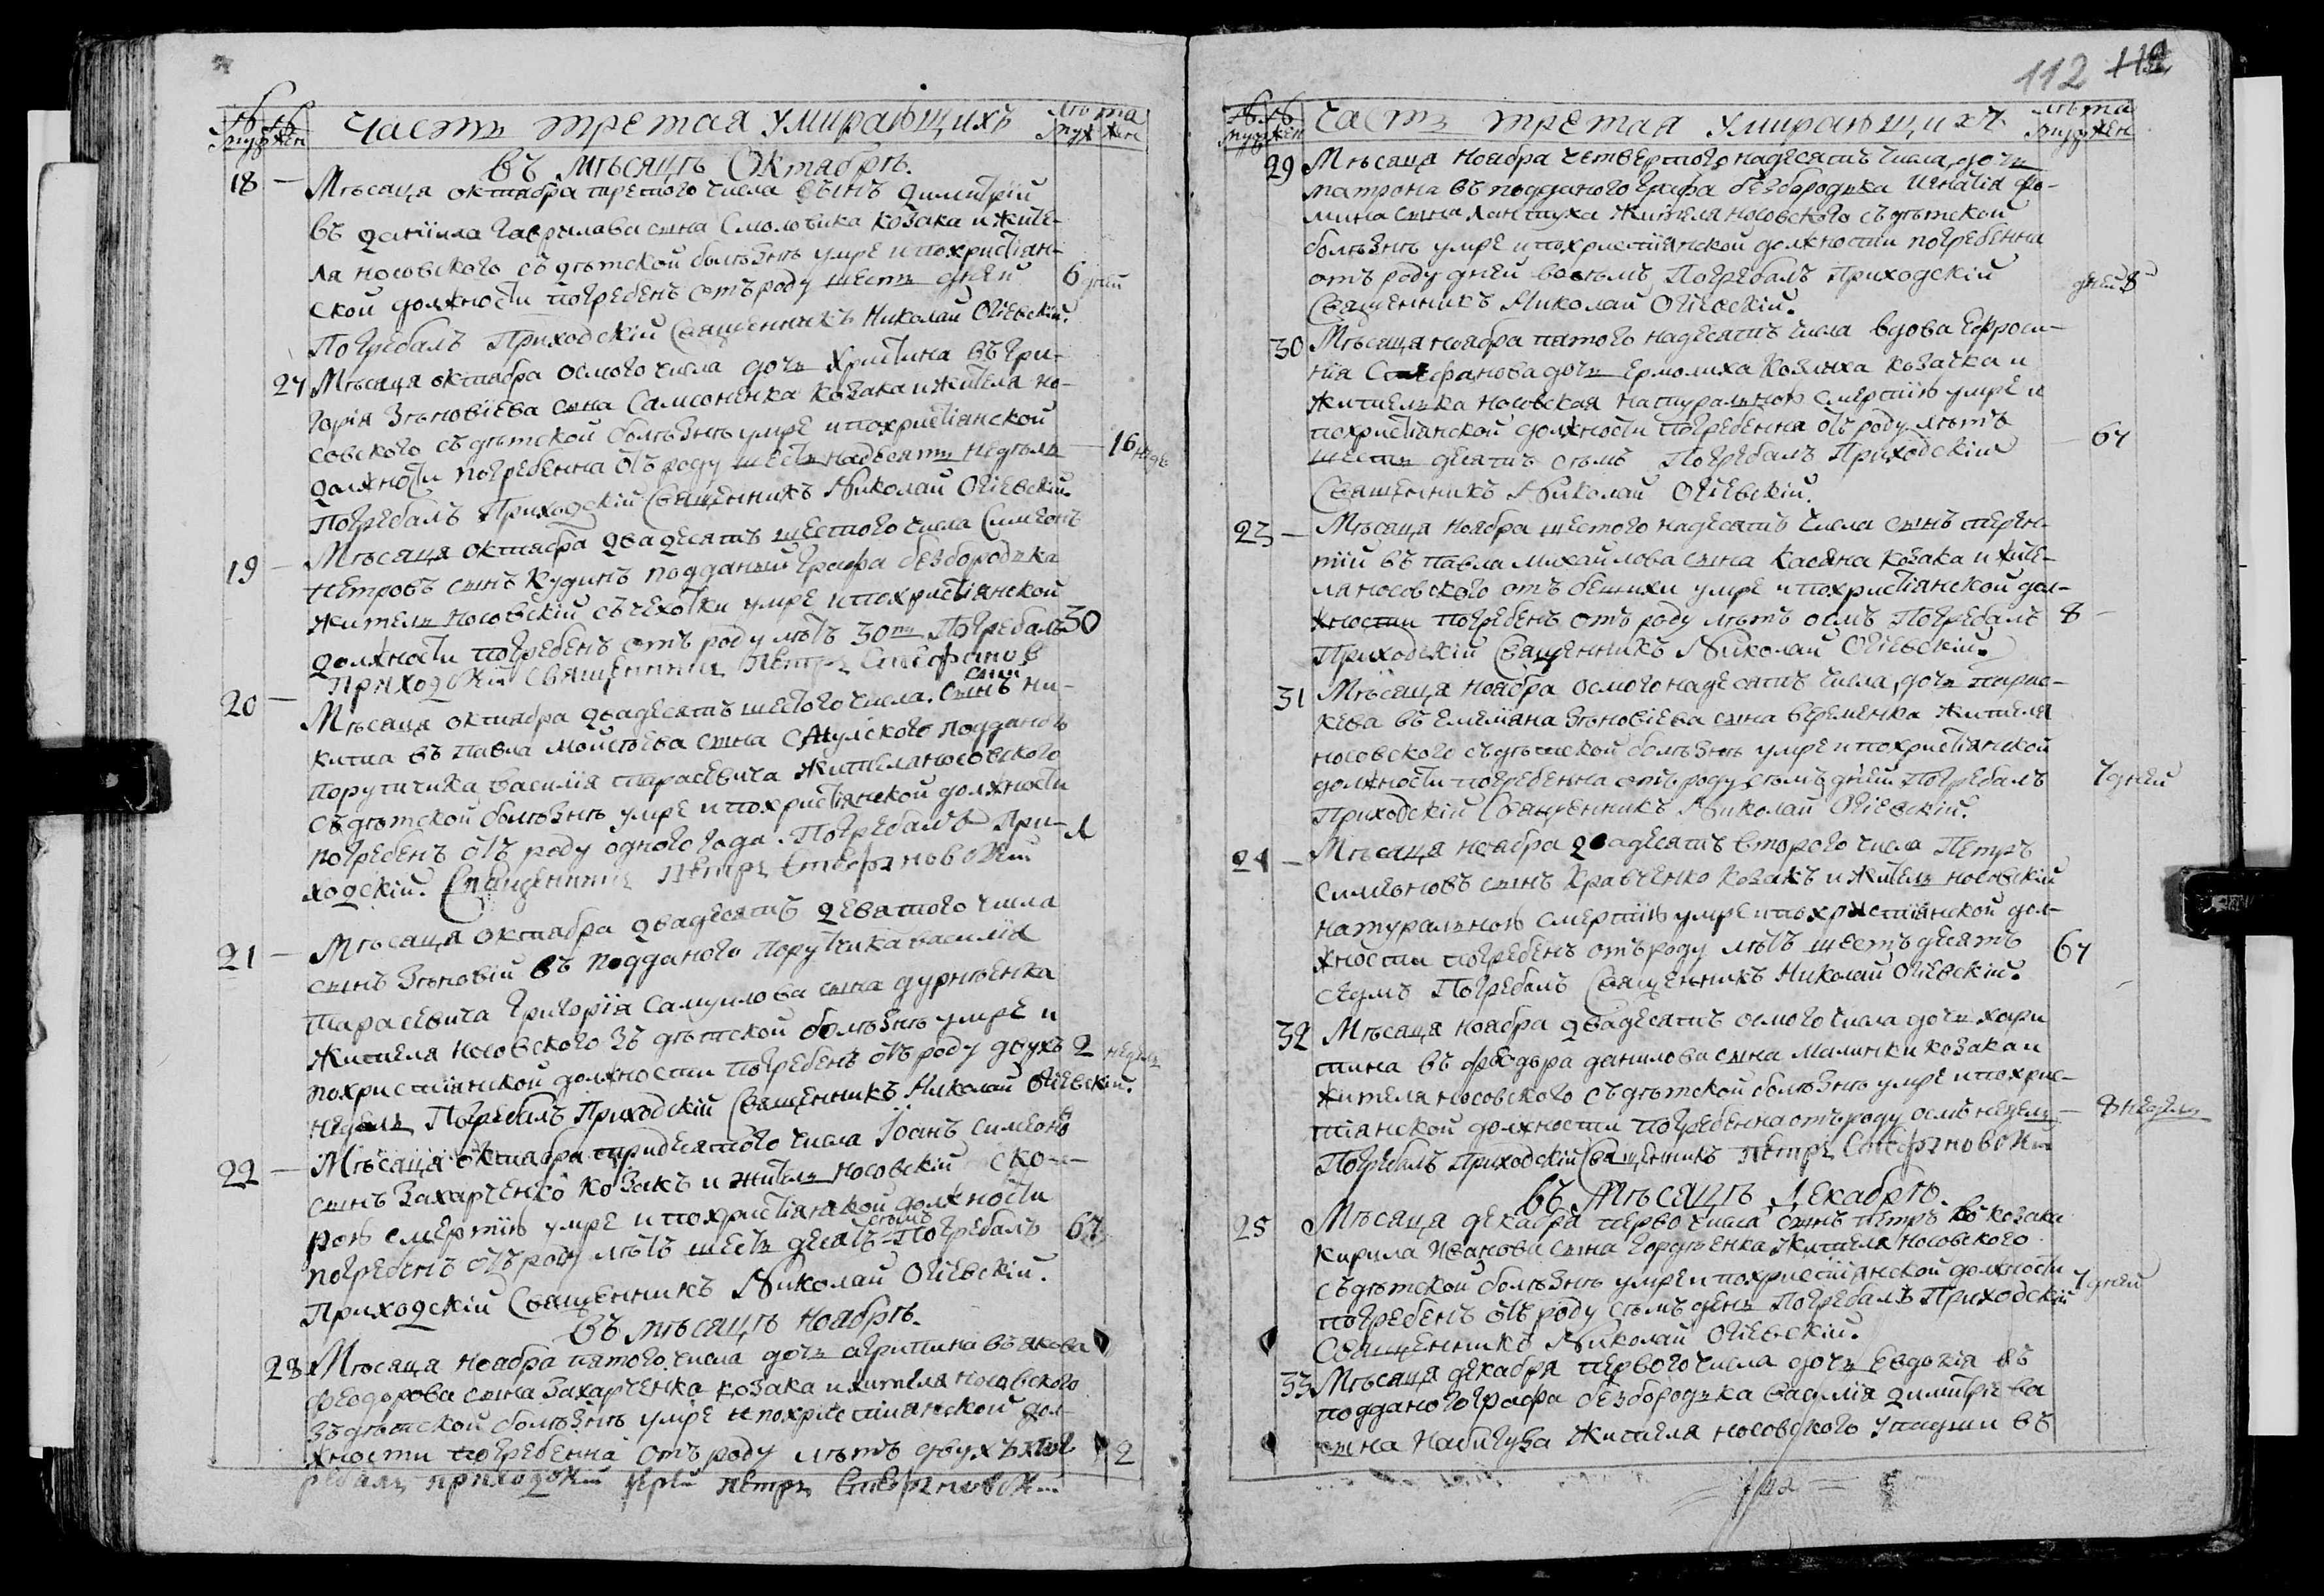 Часть третая умирающихъ
Лѣта
Муж жен
въ мѣсяцѣ Октабрѣ.
18 — Мѣсяца октабра третого числа сынъ Димитрій
въ Даніила Гаврылава сина Смолычика козака и жите-
ля носовского съ дѣтской болѣзнѣ умре и похристіян-
ской должности погребенъ отъ роду шесть дней 6 дней
Погребалъ Приходскій Священникъ Николай Огіевскій.
27 Мѣсяца октабра осмого числа дочь Христина въ Гри-
горія Зѣновіева сина Самсоненка козака и жителя но-
совского съ дѣтской болѣзнѣ умре и похристіанской
должности погребенна отъ роду шестьнадесять недѣль — 16 недѣ
Погребалъ Приходскій Священникъ Николай Огіевскій.
19 — Мѣсяца октабра двадесятъ шестого числа Симеонъ
Петровъ синъ Кудинъ подданый графа безбородька
житель носовскій съ чехотки умре и похристіянской
должности погребенъ отъ роду лѣтъ 30ть Погребалъ 30
приходскій священникъ Петръ Стефанов
20 — Мѣсяца октиабра двадесятъ шестого числа. Сынъ ни-
кита въ Павла Мойсѣева сина подданого
поручика Василія тарасевича жителя носовского
съ дѣтской болѣзнѣ умре и похристіянской должности
погребенъ отъ роду одного года. Погребалъ При- 1
ходскій. Священникъ Петръ Стефановскій
21 — Мѣсяца октиабра двадесятъ девятого числа
сынъ Зѣновій въ подданого поручика василія
тарасевича Григорія Самуилова сына дурнѣенка
жителя носовского зъ дѣтской болѣзнѣ умре и
похристіянской должности погребенъ отъ роду двухъ 2 недель
недель Погребалъ Приходскій Священникъ Николай Огіевскій.
22 — Мѣсяца октиабра тридесятого числа Іоанъ Симеонов
сынъ Захарченко козакъ и житель носовскій ско-
рою смертію умре и похристіянской должности
погребенъ отъ роду лѣтъ шесть десятъ сѣмъ Погребалъ 67
Приходскій Священникъ Николай Огіевскій.
Въ мѣсяцѣ Ноабрѣ.
28 Мѣсяца Ноабра пятого числа дочь агрипина въ якова
феодорова сына Захарченка козака и жителя носовского
зъ дѣтской болѣзнѣ умре и похристиянской дол-
жности погребенна отъ роду лѣтъ двухъ пог 2
ребалъ приходскій іерей Петръ Стефановск
112
Часть третая умирающихъ
лѣта
29 Мѣсяца Ноабра четвертогонадесять числа дочь
матрона въ подданого графа безбородька Игнатія Фо-
мина сына Лантуха жителя носовского съ дѣтской
болѣзнѣ умре и похристіянской должности погребенна
отъ роду дней восѣмъ Погребалъ Приходскій дней 8
Священникъ Николай Огіевскій.
30 Мѣсяца ноабра пятого надесятъ числа вдова Ефроси-
нія Стефанова дочь Ермолиха Козачка и
жителька носовская натуральною смертію умре и
похристіянской должности погребенна отъ роду лѣтъ 67
шесть десятъ сѣмъ Погребалъ Приходскій
Священникъ Николай Огіевскій.
23 — Мѣсяца Ноабра шестого надесятъ числа сынъ терен-
тій въ павла михайлова сына Касяна козака и жите-
ля носовского отъ бешихи умре и похристіянской дол-
жности погребенъ отъ роду лѣтъ осмъ Погребалъ 8 —
Приходскій Священникъ Николай Огіевскій.
31 Мѣсяца Ноабра осмого надесятъ числа, дочь парас-
кева въ емеліяна Зѣновіева сына веременка жителя
носовского съ дѣтской болѣзнѣ умре и похристіянской
должности погребенна отъ роду сѣмъ дній Погребалъ 7 дней
Приходскій Священникъ Николай Огіевскій.
24 — Мѣсяца ноабра двадесятъ второго числа Петръ
Симеоновъ сынъ Кравченко козакъ и житель носовскій
натуральною смертію умре и похристіянской дол-
жности погребенъ отъ роду лѣтъ шестъдесятъ 67
седмъ Погребалъ Священникъ Николай Огіевскій.
32 Мѣсяца Ноабра двадесятъ осмого числа дочь хари
тина въ феодора данилова сына Малинки козака и
жителя носовского съ дѣтской болѣзнѣ умре и похрис-
тіянской должности погребенна отъ роду осмъ недель — 8 недель
Погребалъ Приходскій Священникъ Петръ Стефановскі
въ Мѣсяцѣ Декабрѣ
25 Мѣсяца декабра перво числа сынъ петръ въ козака
Кирила Иванова сына Гордѣенка жителя носовского
съ дѣтской болѣзнѣ умре и похристіянской должности
погребенъ отъ роду сѣмъ день Погребалъ Приходскій 7 дней
Священникъ Николай Огіевскій.
33 Мѣсяца декабря первого числа дочь Евдокія въ
подданого графа безбородька василія димитріева
сына жителя носовского упадши въ